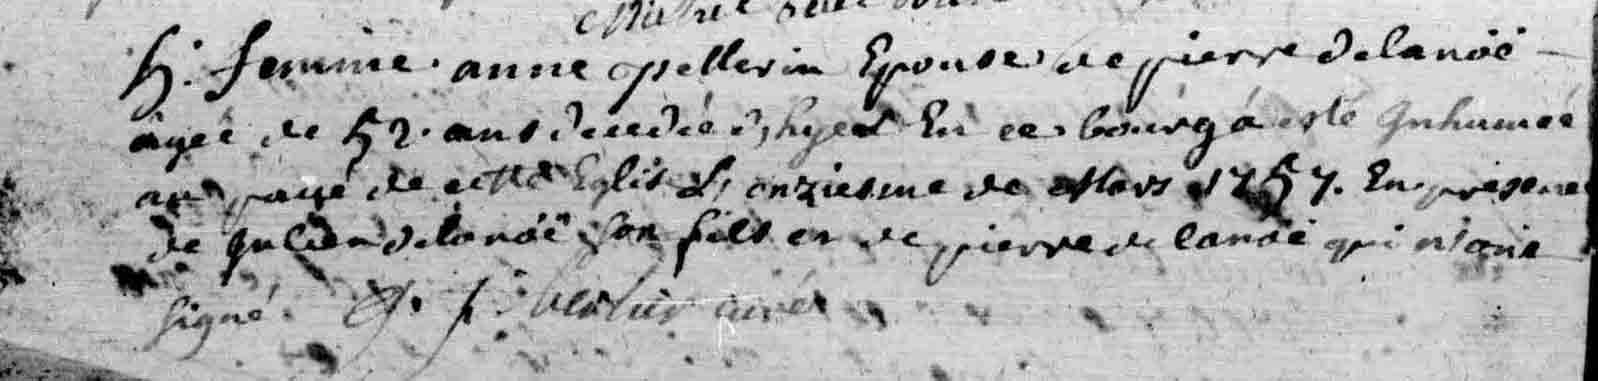 h. femme anne pellerin Epouse de pierre delanoë
agée de 52. ans decedée d'hyer En ce bourg a esté Inhumée
au pavé de cette Eglise L'onziesme de Mars 1757. En presence
de Julien delanoë son fils et de pierre delanoë qui n'ont
signé. curé